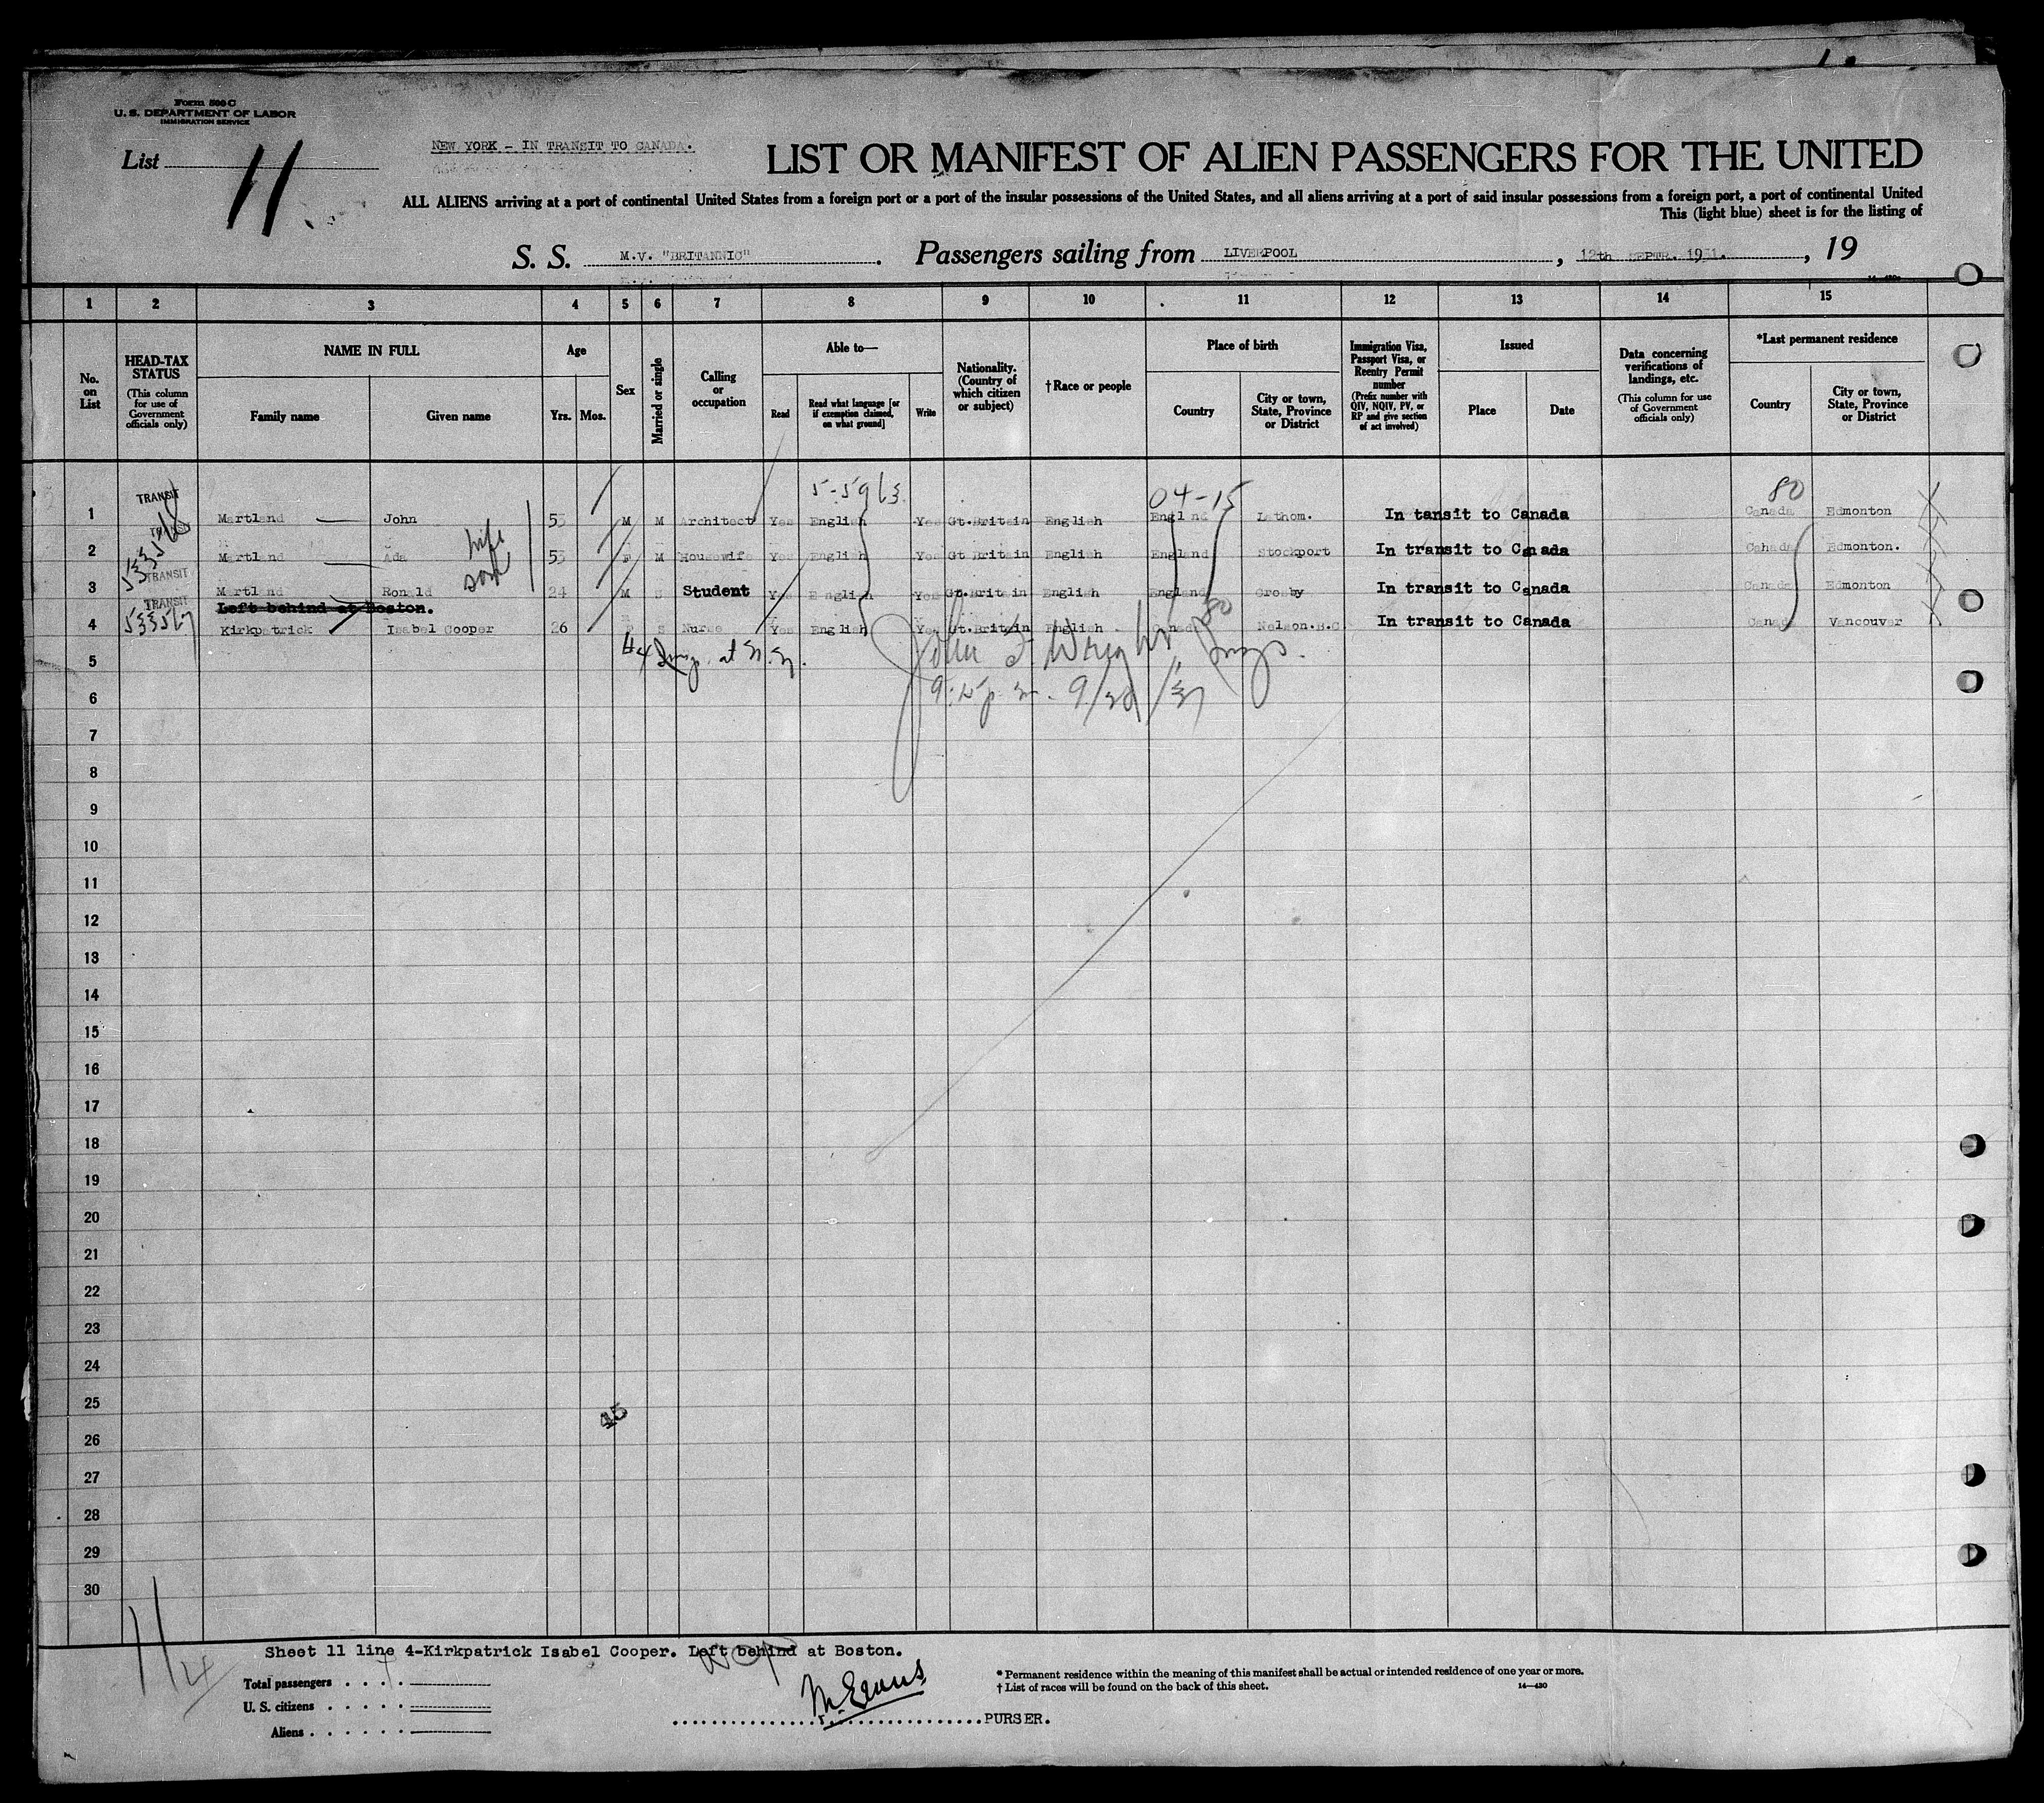 Form 500 C
U. S. DEPARTMENT OF LABOR
IMMIGRATION SERVICE
List 11.
NEW YORK - IN TRANSIT TO CANADA.
LIST OR MANIFEST OF ALIEN PASSENGERS FOR THE UNITED
ALL ALIENS arriving at a port of continental United States from a foreign port or a port of the insular possessions of the United States, and all aliens arriving at a port of said insular possessions from a foreign port, a port of continental United
This (light blue) sheet is for the listing of
S. S. M.V. "BRITANNIC". Passengers sailing from LIVERPOOL, 12th SEPTR. 1931., 19
1 2 3 4 5 6 7 8 9 10 11 12 13 14 15
No. on List
HEAD-TAX STATUS (This column for use of Government officials only)
NAME IN FULL
Family name
Given name
Age
Yrs. Mos.
Sex
Married or single
Calling or occupation
Able to—
Read
Read what language [or if exemption claimed, on what ground]
Write
Nationality. (Country of which citizen or subject)
†Race or people
Place of birth
Country
City or town, State, Province or District
Immigration Visa, Passport Visa, or Reentry Permit number (Prefix number with QIV, NQIV, PV, or RP and give section of act involved)
Issued
Place
Date
Data concerning verifications of landings, etc. (This column for use of Government officials only)
*Last permanent residence
Country
City or town, State, Province or District
5-5963 04-15 80
1 TRANSIT Martland John 53 M M Architect Yes English Yes Gt.Britain English England Lathom. In tansit to Canada Canada Edmonton
2 TRANSIT Martland Ada wife 53 F M Housewife Yes English Yes Gt Britain English England Stockport In transit to Canada Canada Edmonton.
3 TRANSIT Martland Ronald son 24 M S Student Yes English Yes Gt.Britain English England Crosby In transit to Canada Canada Edmonton
Left behind at Boston.
4 TRANSIT 533567 Kirkpatrick Isabel Cooper 26 F S Nurse Yes English Yes Gt.Britain English Canada 80 Nelson.B.C. In transit to Canada Canada Vancouver
5 #4 at N.Y. John Wright
6
7
8
9
10
11
12
13
14
15
16
17
18
19
20
21
22
23
24
25 45
26
27
28
29
30
11/4
Sheet 11 line 4-Kirkpatrick Isabel Cooper. Left behind at Boston.
not
Total passengers
U. S. citizens
Aliens
M Evans
PURSER.
* Permanent residence within the meaning of this manifest shall be actual or intended residence of one year or more.
† List of races will be found on the back of this sheet.
14—430